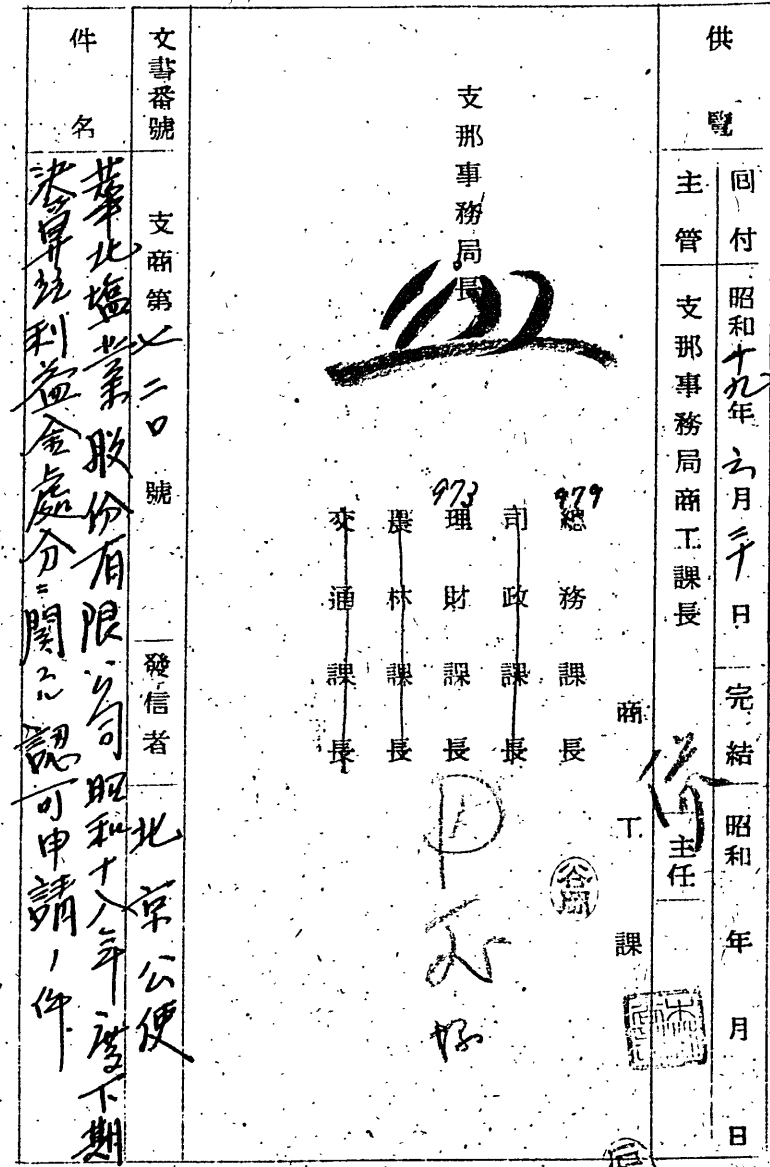 供覽
回付 昭和十九年六月二十日 完結 昭和 年 月 日
主管 支那事務局商工課長 主任
商工課
979
總務課長
司政課長
973
理財課長
農林課長
交通課長
支那事務局長
谷岡
文書番號 支商第七二〇號 發信者 北京公使
件名 華北塩業股份有限公司昭和十八年度下期
決算並利益金處分ニ関スル認可申請ノ件